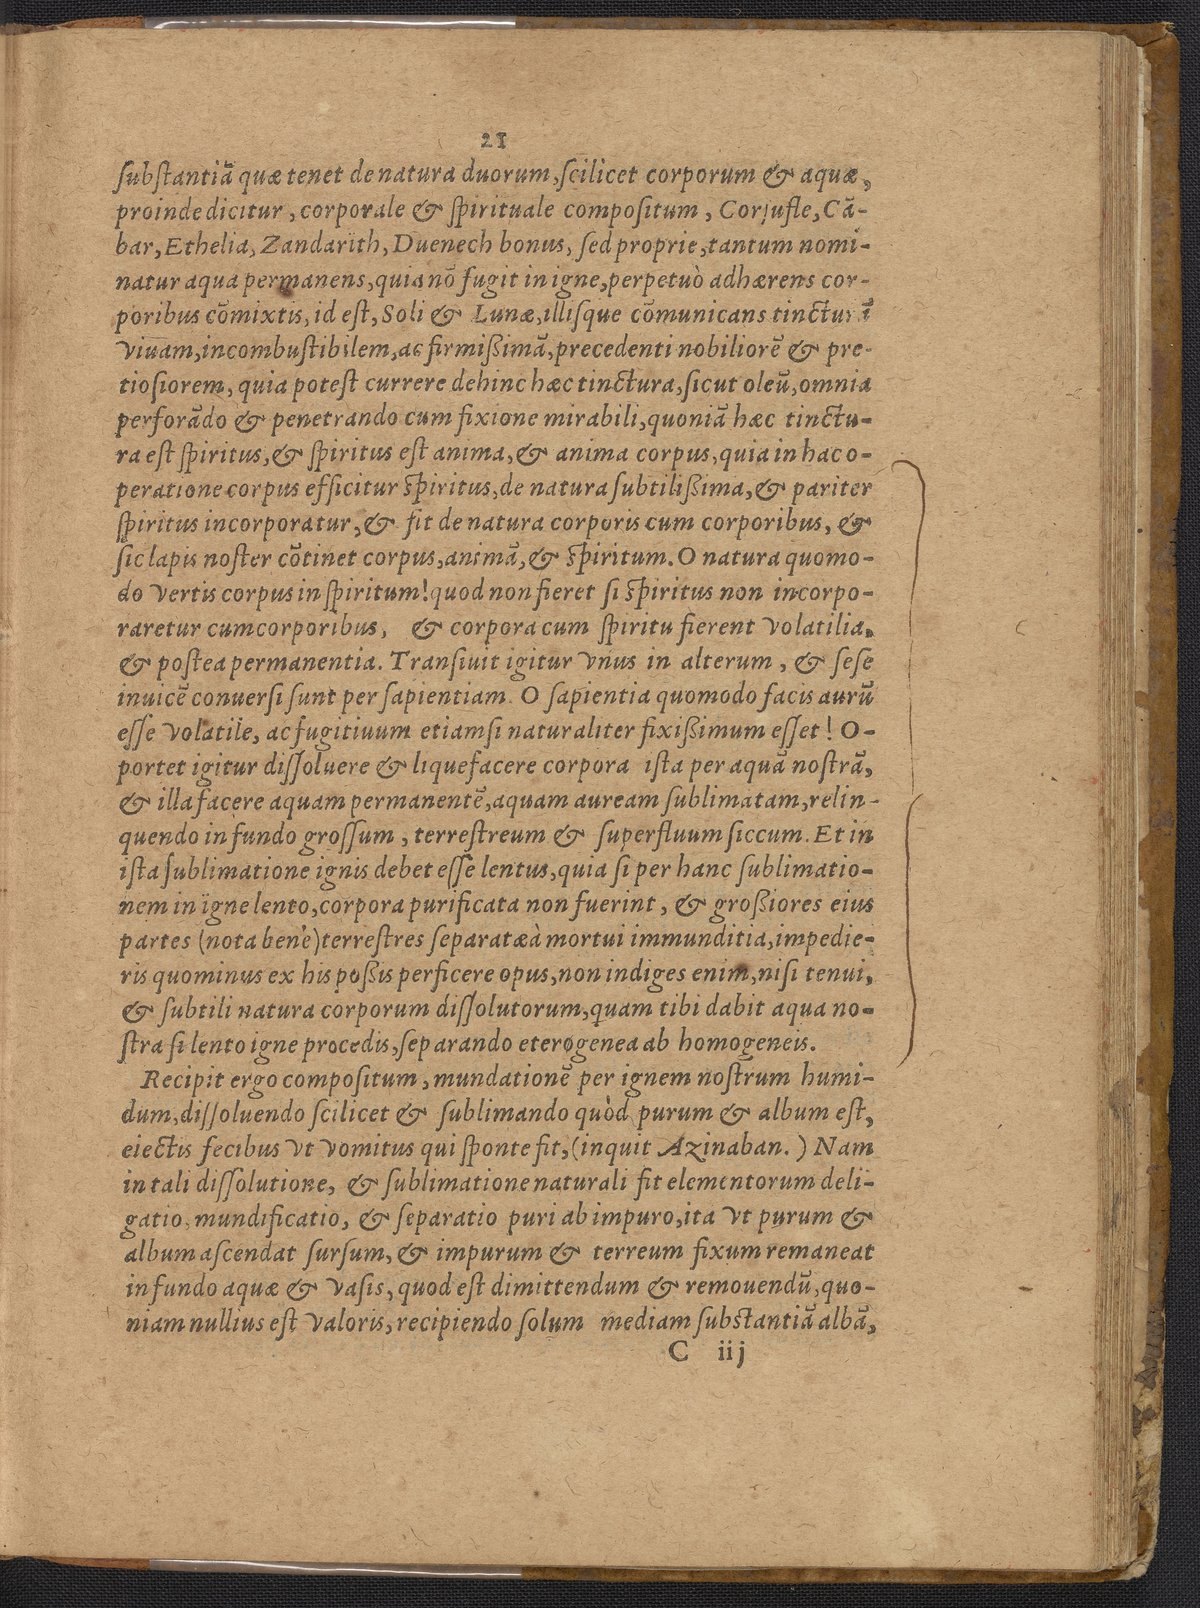 21
substantiā quæ tenet de natura duorum, scilicet corporum & aquæ,
proinde dicitur, corporale & spirituale compositum, Corsufle, Cā-
bar, Ethelia, Zandarith, Duenech bonus, sed proprie, tantum nomi-
natur aqua permanens, quia nō fugit in igne, perpetuò adhærens cor-
poribus cōmixtis, id est, Soli & Lunæ, illisque cōmunicans tincturā
viuam, incombustibilem, ac firmißimā, precedenti nobiliorē & pre-
tiosiorem, quia potest currere dehinc hæc tinctura, sicut oleū, omnia
perforādo & penetrando cum fixione mirabili, quoniā hæc tinctu-
ra est spiritus, & spiritus est anima, & anima corpus, quia in hac o-
peratione corpus efficitur spiritus, de natura subtilißima, & pariter
spiritus incorporatur, & fit de natura corporis cum corporibus, &
sic lapis noster cōtinet corpus, animā, & spiritum. O natura quomo-
do vertis corpus in spiritum! quod non fieret si spiritus non incorpo-
raretur cum corporibus, & corpora cum spiritu fierent volatilia,
& postea permanentia. Transiuit igitur vnus in alterum, & sese
inuicē conuersi sunt per sapientiam. O sapientia quomodo facis aurū
esse volatile, ac fugitiuum etiamsi naturaliter fixißimum esset! O-
portet igitur dissoluere & liquefacere corpora ista per aquā nostrā,
& illa facere aquam permanentē, aquam auream sublimatam, relin-
quendo in fundo grossum, terrestreum & superfluum siccum. Et in
ista sublimatione ignis debet esse lentus, quia si per hanc sublimatio-
nem in igne lento, corpora purificata non fuerint, & großiores eius
partes (nota benè) terrestres separatæ à mortui immunditia, impedie-
ris quominus ex his poßis perficere opus, non indiges enim, nisi tenui,
& subtili natura corporum dissolutorum, quam tibi dabit aqua no-
stra si lento igne procedis, separando eterogenea ab homogeneis.
Recipit ergo compositum, mundationē per ignem nostrum humi-
dum, dissoluendo scilicet & sublimando quòd purum & album est,
eiectis fecibus vt vomitus qui sponte fit, (inquit Azinaban.) Nam
in tali dissolutione, & sublimatione naturali fit elementorum deli-
gatio, mundificatio, & separatio puri ab impuro, ita vt purum &
album ascendat sursum, & impurum & terreum fixum remaneat
in fundo aquæ & vasis, quod est dimittendum & remouendū, quo-
niam nullius est valoris, recipiendo solum mediam substantiā albā,
C iij